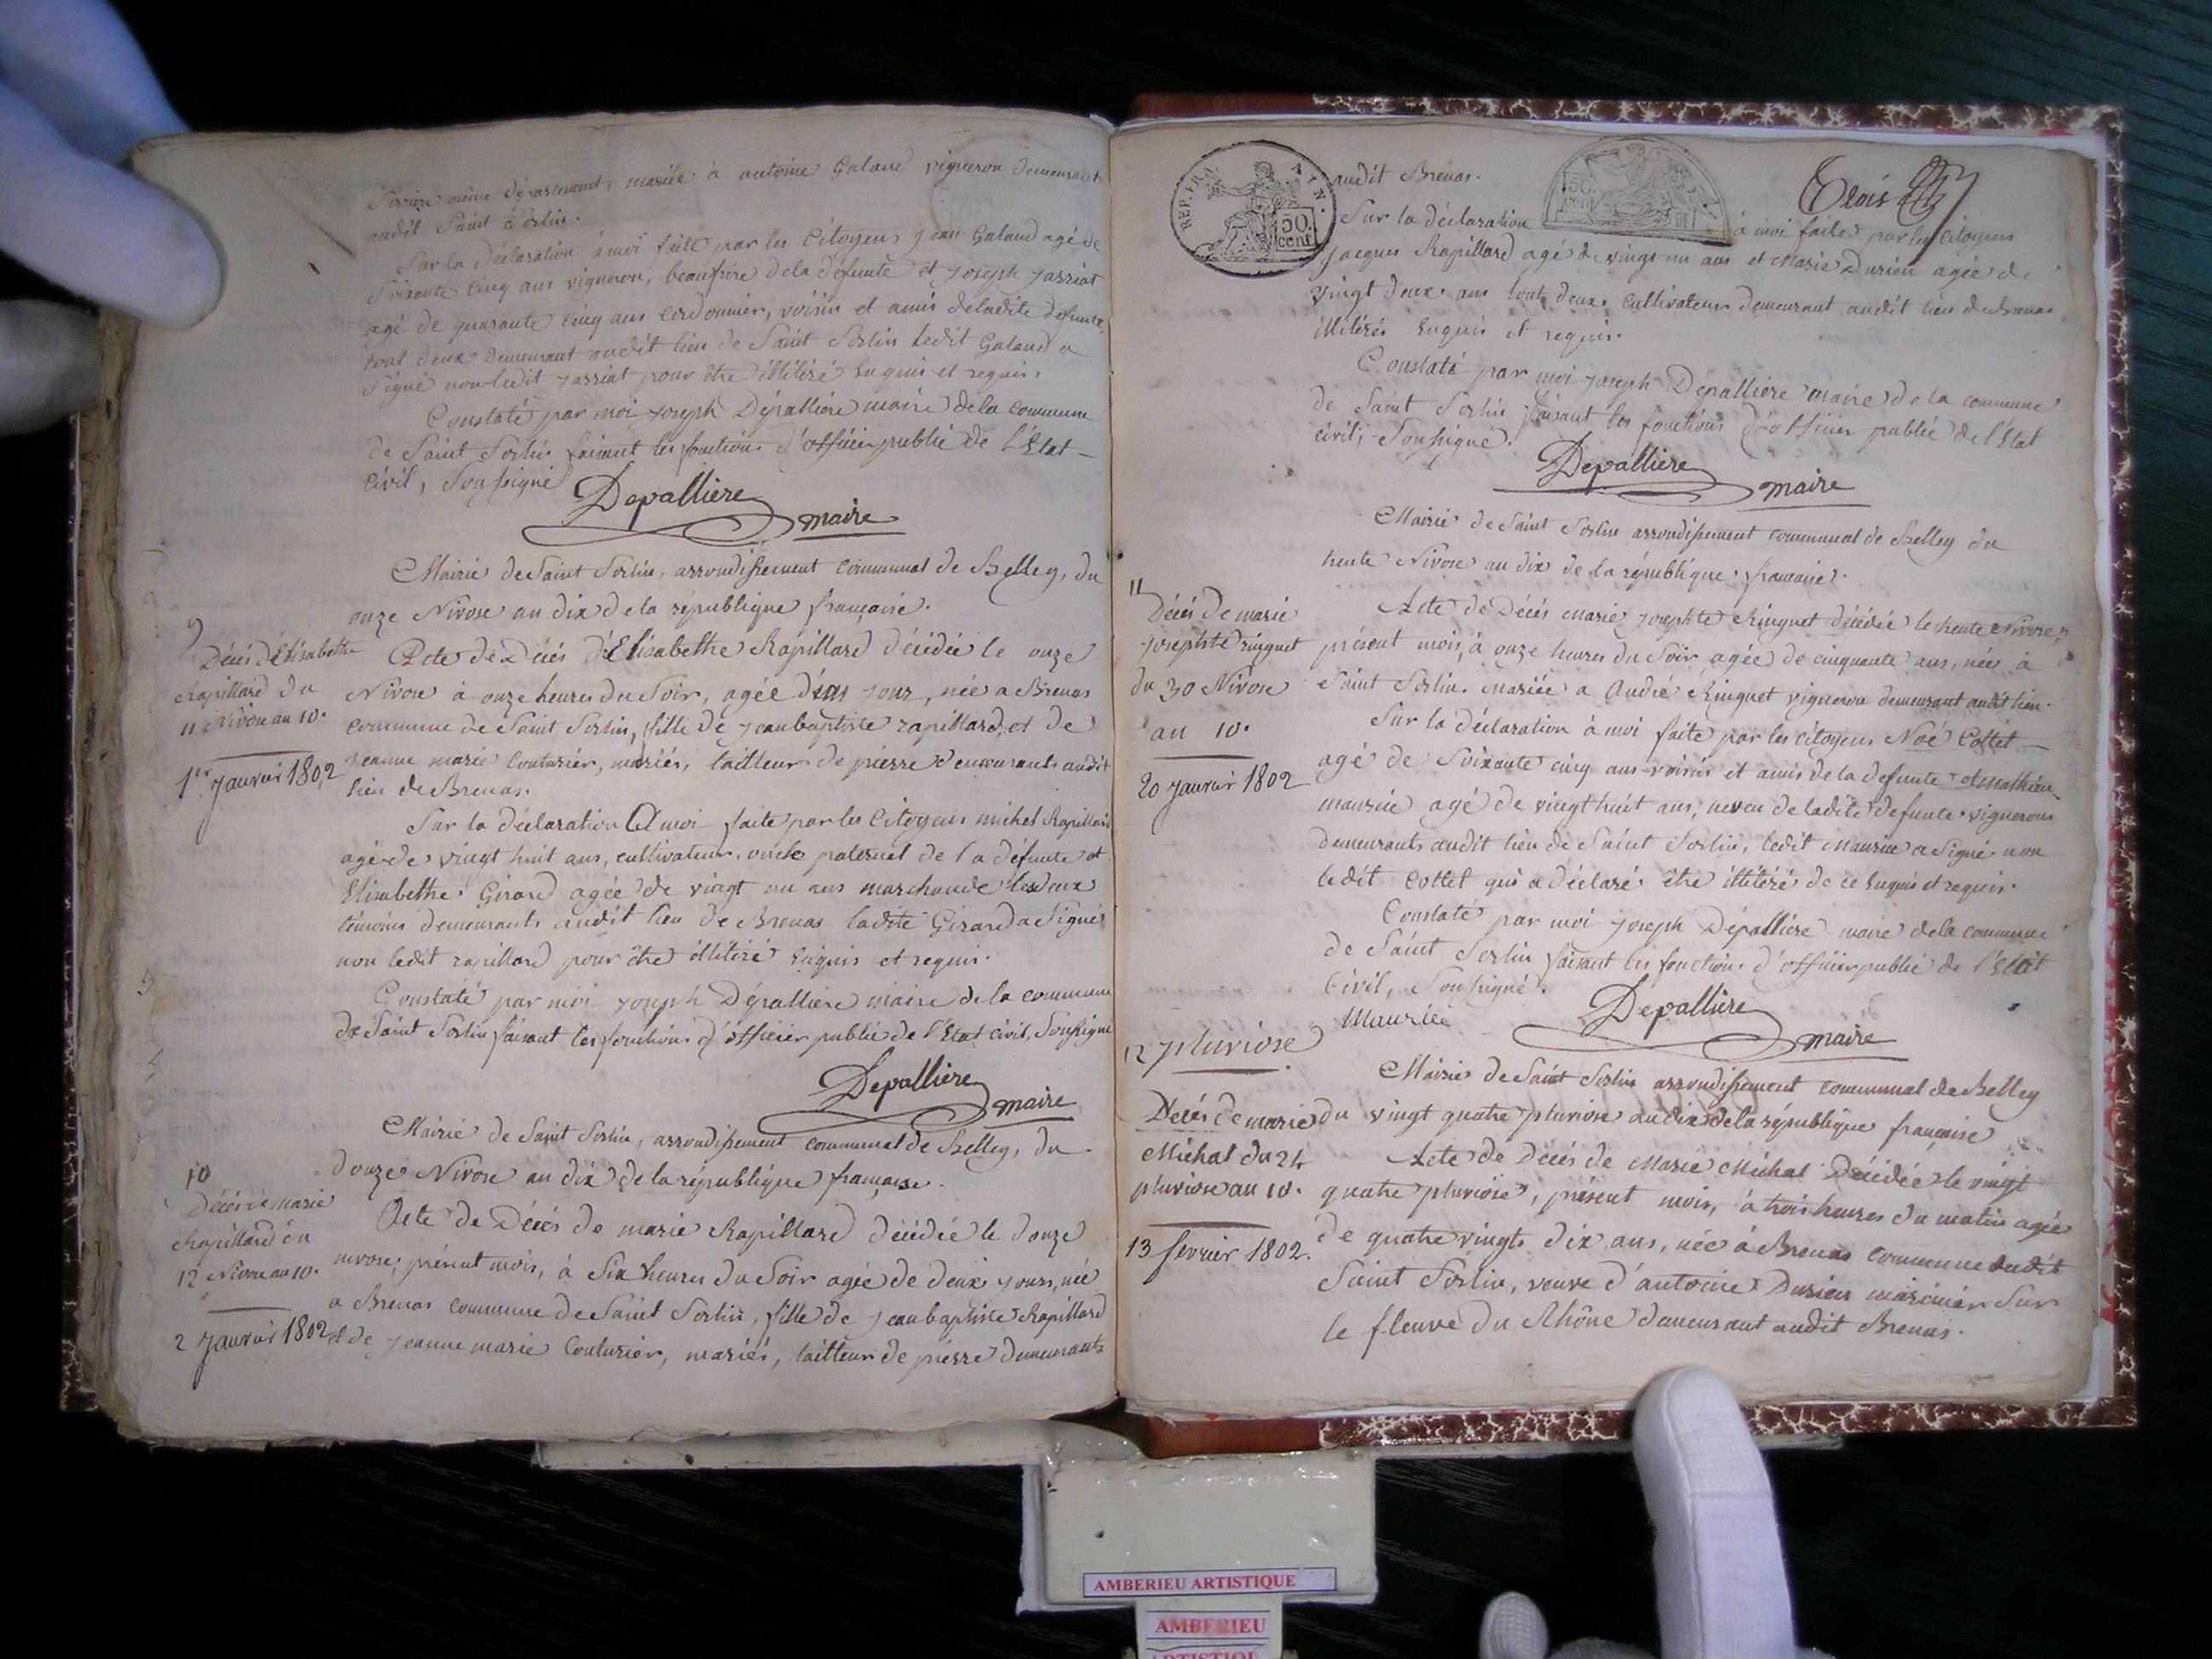 même département, mariée à antoine Galand vigneron demeurant
audit Saint Sorlin.
Sur la Déclaration à moi faite par les Citoyens jean Galand agé de
Soixante Cinq ans vigneron, beaufrère dela défunte et joseph jarriat
agé de quarante cinq ans cordonnier, voisin et amis deladite défunte
tout deux demeurant audit lieu de Saint Sorlin ledit Galand a
Signé non ledit jarriat pour être illitéré Enquis et requis.
Constaté par moi joseph Dépallière maire dela commune
de Saint Sorlin faisant les fonctions d'officier public de l'Etat
Civil, Soussigné
Depallière
maire
Mairie de Saint Sorlin, arrondissement communal de Belley, du
onze Nivose an dix dela république française.
9
Décés d'Elisabethe
Rapillard du
11 Nivose an 10.
1er janvier 1802
Acte de Décés d'Elisabethe Rapillard décédée le onze
Nivose à onze heures du Soir, agée d'un jour, née a Brenas
commune de Saint Sorlin, fille de jean baptiste rapillard, et de
jeanne marie Couturier, mariés, tailleur de pierre demeurants audit
lieu de Brenas.
Sur la déclaration A moi faite par les Citoyens michel Rapillard
agé de vingt huit ans, cultivateur, oncle paternel de la défunte et
Elisabethe Girard agée de vingt un ans marchande les deux
témoins demeurants audit lieu de Brenas ladite Girard a Signé
non ledit rapillard pour être illitéré Enquis et requis.
Constaté par moi joseph Dépallière maire de la commune
de Saint Sorlin faisant les fonctions d'officier public de l'Etat civil, Soussigné
Depallière
maire
Mairie de Saint Sorlin, arrondissement communal de Belley, du
douze Nivose an dix de la république française.
10
Décés de marie
Rapillard du
12 Nivose an 10.
2 janvier 1802
Acte de Décés de marie Rapillard décédée le douze
nivose, présent mois, à Six heures du Soir agée de deux jours, née
a Brenas commune de Saint Sorlin, fille de jean baptiste Rapillard
et de jeanne marie Couturier, mariés, tailleur de pierre demeurants
REP. FRA. AIN.
50 cent.
Trois
audit Brenas.
Sur la déclaration à moi faite par les Citoyens
jacques Rapillard agé de vingt un ans et Marie Durieu agée de
vingt deux ans tout deux cultivateurs demeurant audit lieu de Brenas
illitérés Enquis et requis.
Constaté par moi joseph Dépallière maire de la commune
de Saint Sorlin faisant les fonctions d'officier public de l'Etat
civil, Soussigné.
Depallière
maire
Mairie de Saint Sorlin arrondissement communal de Belley du
trente Nivose an dix de la république française.
11
Décés de marie
josephte ringuet
du 30 Nivose
an 10.
20 janvier 1802
Acte de Décés Marie josephte Ringuet décédée le trente Nivose,
présent mois, à onze heures du Soir agée de cinquante ans, née à
Saint Sorlin. mariée a André Ringuet vigneron demeurant audit lieu.
Sur la déclaration à moi faite par les citoyens Noé Cottet
agé de Soixante cinq ans voisin et amis de la defunte et mathieu
maurice agé de vingt huit ans, neveu de ladite defunte vignerons
demeurants audit lieu de Saint Sorlin, ledit Maurice a Signé non
ledit Cottet qui a déclaré être illitéré de ce Enquis et requis.
Constaté par moi joseph Dépallière maire dela commune
de Saint Sorlin faisant les fonctions d'officier public de l'Etat
Civil, Soussigné.
Maurice
Depallière
maire
12 pluviose
Mairie de Saint Sorlin arrondissement communal de Belley
du vingt quatre pluviose an dix dela république française
Décés de marie
Michal du 24
pluviose an 10.
13 fevrier 1802.
Acte de Décés de Marie Michal Décédée le vingt
quatre pluviose, présent mois, à trois heures du matin agée
de quatre vingts dix ans, née à Brenas commune dudit
Saint Sorlin, veuve d'antoine Durieu marinier Sur
le fleuve du Rhône demeurant audit Brenas.
AMBERIEU ARTISTIQUE
AMBERIEU
ARTISTIQUE